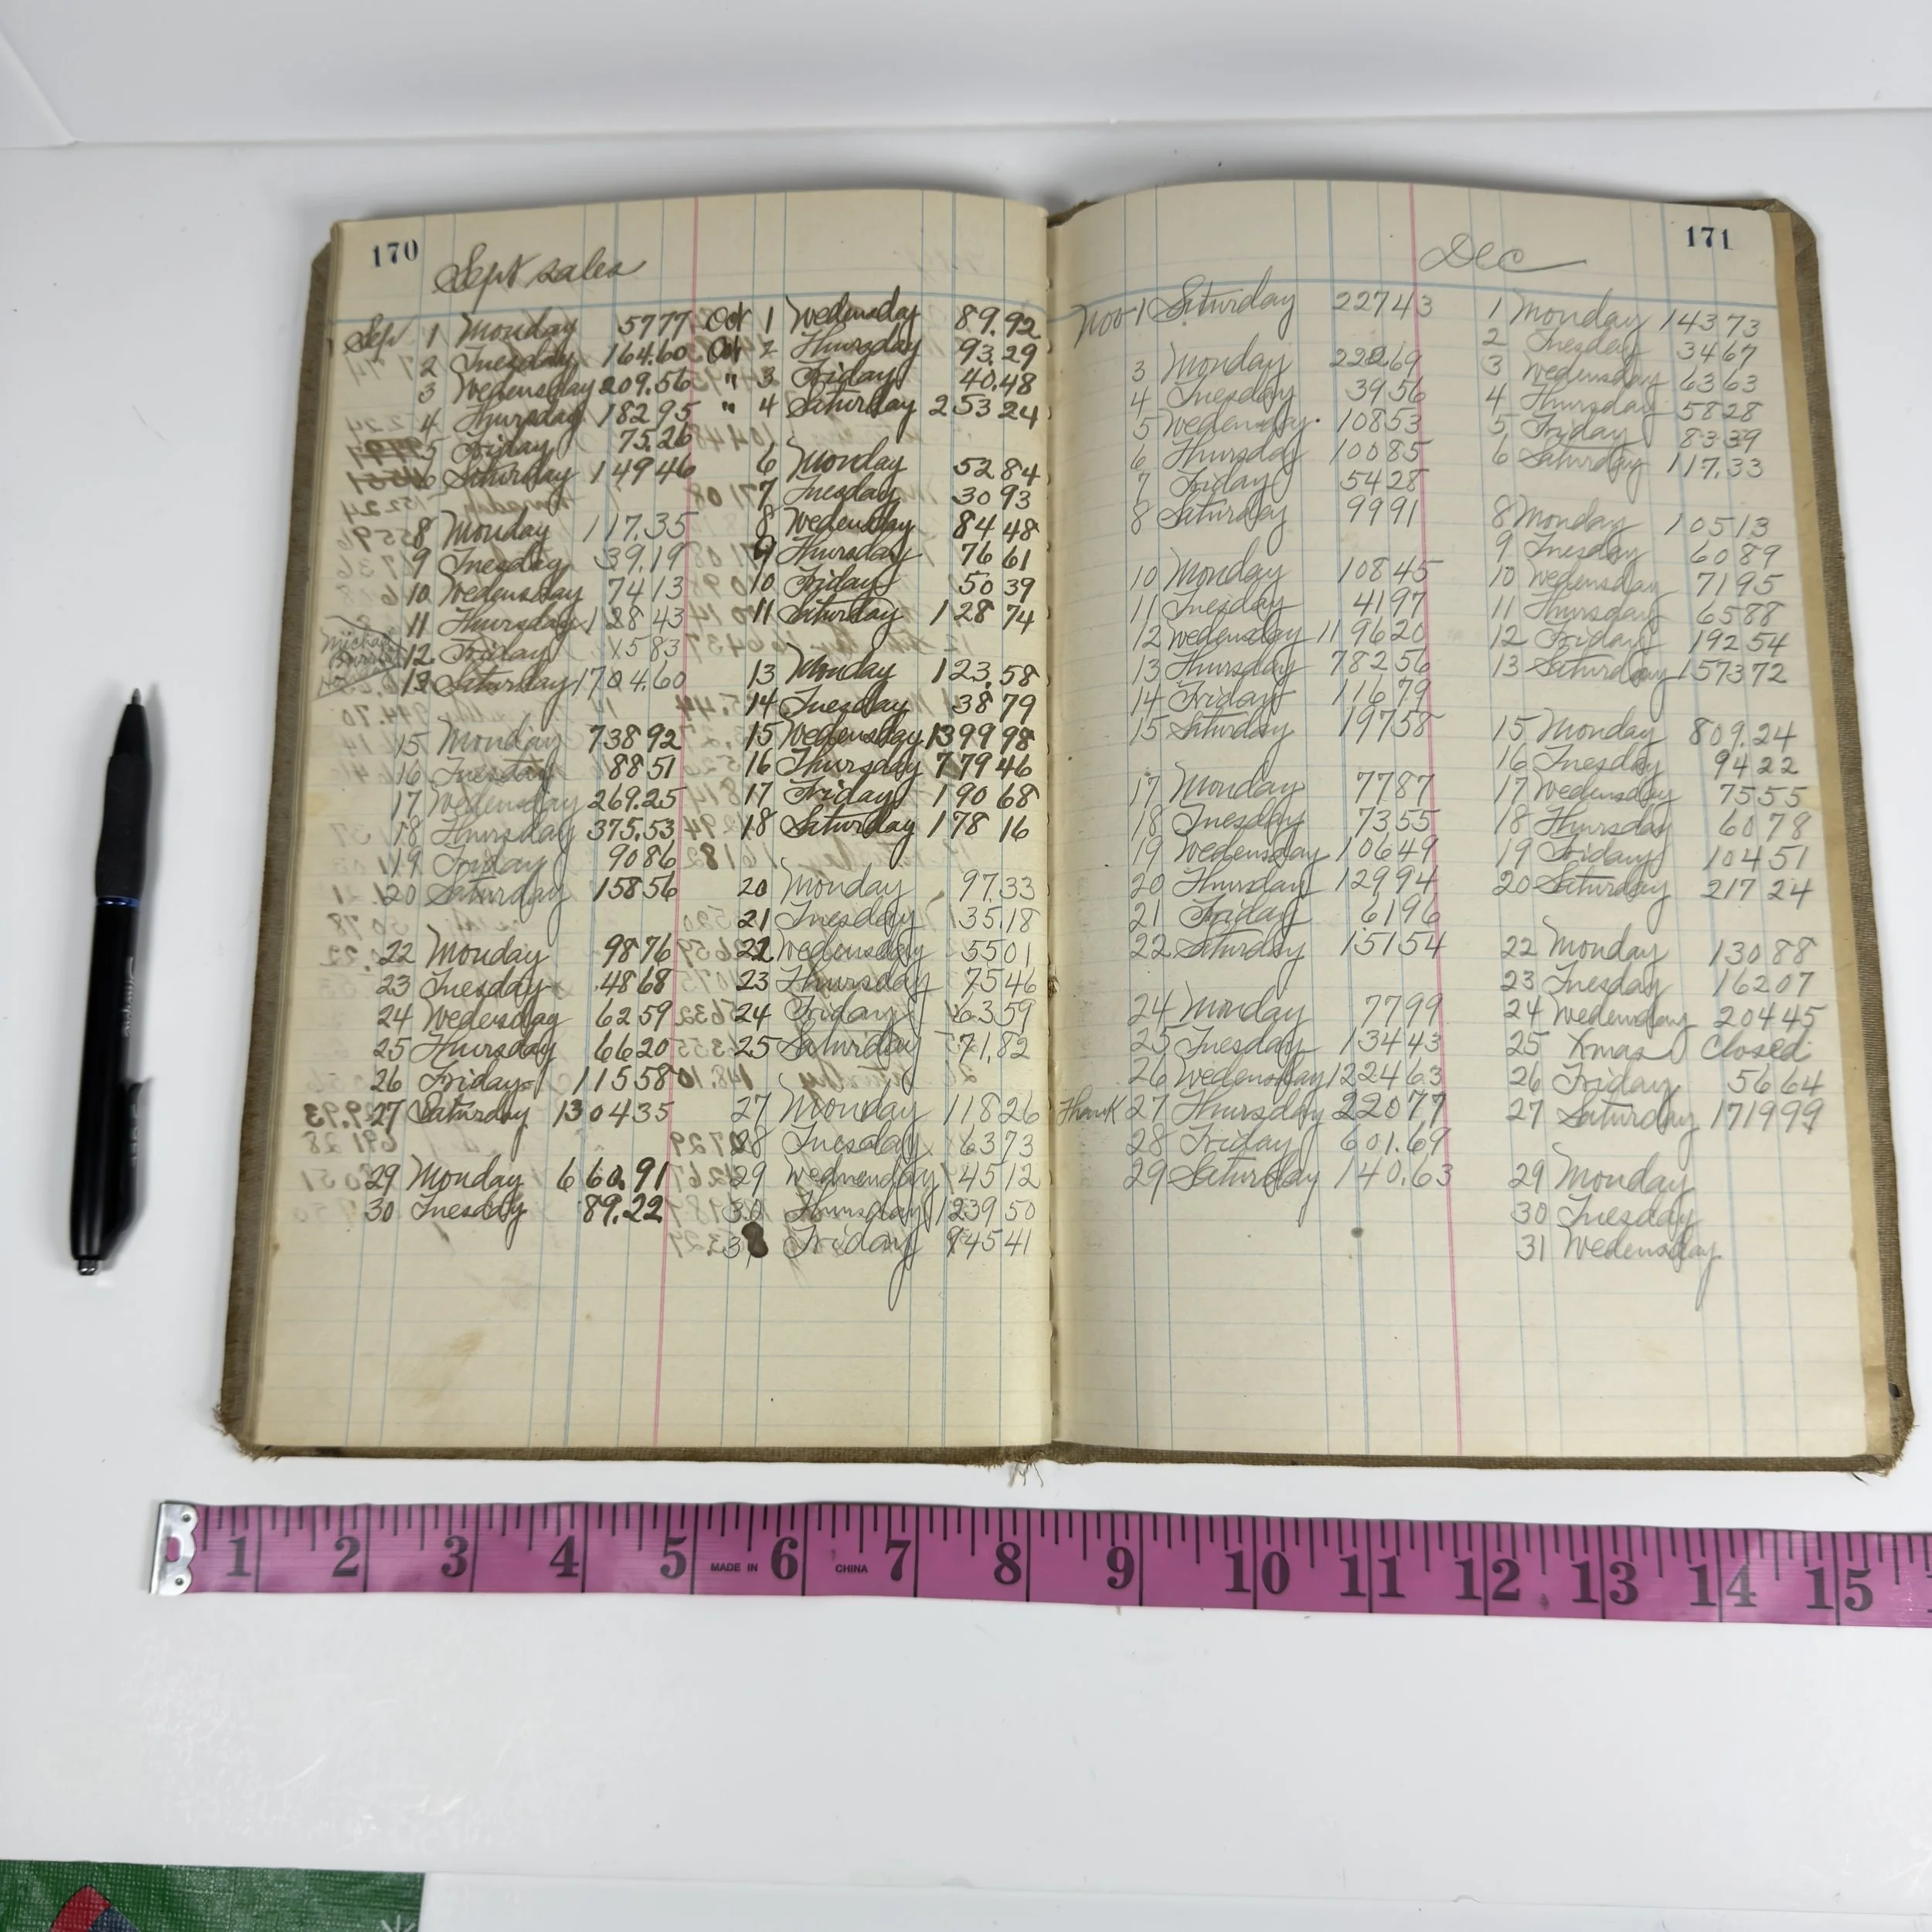 170
Sept sales
Sep 1 Monday 57 77
2 Tuesday 164.60
3 Wedensday 209.56
4 Thursday 182 95
5 Friday 75.26
6 Saturday 149 46
8 Monday 117.35
9 Tuesday 39.19
10 Wedensday 74 13
11 Thursday 128 43
12 Friday
13 Saturday 1704.60
15 Monday 738 92
16 Tuesday 88 51
17 Wedensday 269.25
18 Thursday 375.53
19 Friday 90 86
20 Saturday 158 56
22 Monday 98 76
23 Tuesday 48 68
24 Wedensday 62 59
25 Thursday 66 20
26 Friday 115 58
27 Saturday 1304 35
29 Monday 660.91
30 Tuesday 89.22
Oct 1 Wedensday 89.92
Oct 2 Thursday 93.29
" 3 Friday 40.48
" 4 Saturday 253 24
6 Monday 52 84
7 Tuesday 30 93
8 Wedensday 84 48
9 Thursday 76 61
10 Friday 50 39
11 Saturday 128 74
13 Monday 123.58
14 Tuesday 38 79
15 Wedensday 1399 98
16 Thursday 779 46
17 Friday 190 68
18 Saturday 178 16
20 Monday 97.33
21 Tuesday 35.18
22 Wedensday 55 01
23 Thursday 75 46
24 Friday 63 59
25 Saturday 71.82
27 Monday 118 26
28 Tuesday 63 73
29 Wednenday 45 12
30 Thursday 1239 50
Friday 945 41
171
Dec
Nov 1 Saturday 227 43
3 Monday
4 Tuesday 39 56
5 Wedensday 108 53
6 Thursday 100 85
7 Friday 54 28
8 Saturday 99 91
10 Monday 108 45
11 Tuesday 41 97
12 Wedensday 1196 20
13 Thursday 782 56
14 Friday 116 79
15 Saturday 197 58
17 Monday 77 87
18 Tuesday 73 55
19 Wedensday 106 49
20 Thursday 129 94
21 Friday 61 96
22 Saturday 151 54
24 Monday 77 99
25 Tuesday 134 43
26 Wedensday 1224 63
Thank 27 Thursday 220 77
28 Friday 601.69
29 Saturday 140.63
1 Monday 143 73
2 Tuesday 34 67
3 Wedensday 63 63
4 Thursday 58 28
5 Friday 83 39
6 Saturday 117.33
8 Monday 105 13
9 Tuesday 60 89
10 Wedensday 71 95
11 Thursday 65 88
12 Friday 192 54
13 Saturday 1573 72
15 Monday 809.24
16 Tuesday 94 22
17 Wedensday 75 55
18 Thursday 60 78
19 Friday 104 51
20 Saturday 217 24
22 Monday 130 88
23 Tuesday 162 07
24 Wedensday 204 45
25 Xmas Closed
26 Friday 56 64
27 Saturday 1719 99
29 Monday
30 Tuesday
31 Wedensday
1 2 3 4 5 MADE IN 6 CHINA 7 8 9 10 11 12 13 14 15